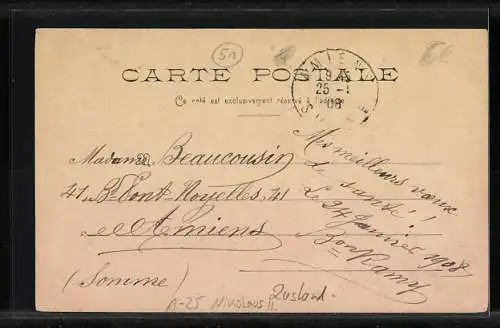 51
CARTE POSTALE
Ce côté est exclusivement réservé à l'adresse
AMIENS
25 -1
08
Madame Beaucousin
41 Bd Pont-Noyelles, 41
Amiens
(Somme)
Mes meilleurs vœux
de santé!!
Le 24 Janvier 1908
Bon
A-25 NIKOLAUS II. Zustand.